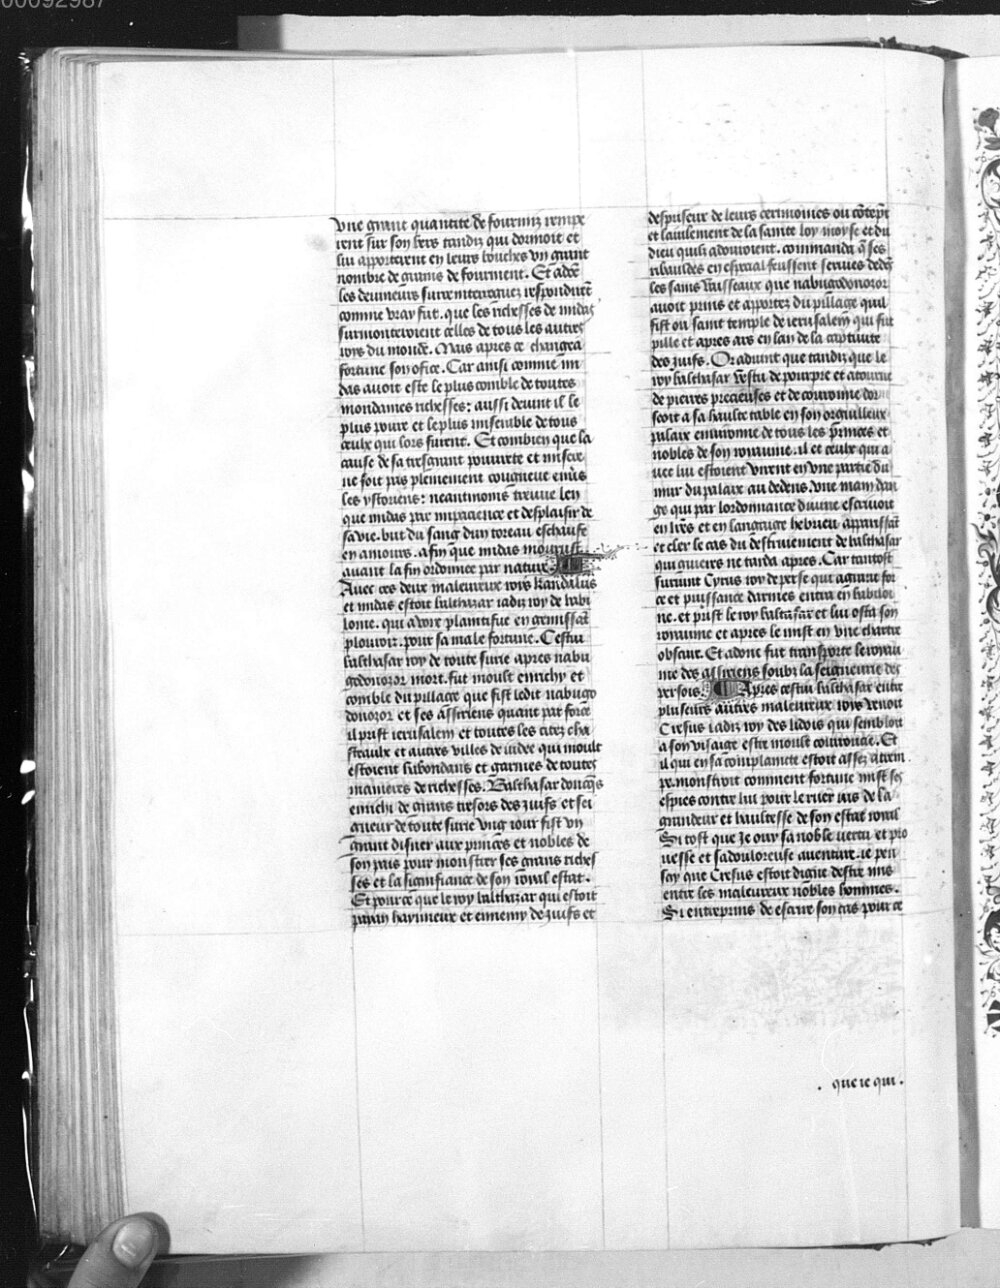 00092987
vne grant quantite de fourmiz rempe
rent sur son bers tandiz qui dormoit et
lui apporterent en leurs bouches vn grant
nombre de grains de fourment. Et adõc
les deuineurs surce interroguez respondirẽt
comme vray fut. que les richesses de midas
surmonteroient celles de tous les autres
roys du monde. Mais apres ce changea
fortune son office. Car ainsi comme mi
das auoit este le plus comble de toutes
mondaines richesses: aussi deuint il le
plus poure et le plus miserable de tous
ceulx qui lors furent. Et combien que la
cause de sa tresgrant pouurete et misere
ne soit pas plainement congneue enũs
les ystoriens: neantmoins treuue len
que midas par impacience et desplaisir de
sa vie. but du sang dun toreau eschaufe
en amours. afin que midas mourust
auant la fin ordonnee par nature.
Auec ces deux maleureux roys Kandalus
et midas estoit balthazar iadiz roy de babi
lonie. qui a voix plaintifue en gemissãt
plouroit. pour sa male fortune. Cestui
balthasar roy de toute surie apres nabu
godonozor mort. fut moult enrichy et
comble du pillage que fist ledit nabugo
donozor et ses assiriens quant par force
il prist ierusalem et toutes les citez cha
steaulx et autres villes de iudee qui moult
estoient habondans et garnies de toutes
manieres de richesses. Balthasar doncq̃s
enrichi de grans tresors des iuifs et sei
gneur de toute surie vng iour fist vn
grant disner aux princes et nobles de
son pais pour monstrer ses grans riches
ses et la signifiance de son roial estat.
Et pour ce que le roy balthazar qui estoit
paian hayneux et ennemy de iuifs et
despriseur de leurs cerimonies ou cõtẽpt
et lauilement de la sainte loy moyse et du
dieu quilz adouroient. commanda q̃ ses
ribauldes en especial feussent seruies dedẽs
les sains vaisseaux que nabugodonozor
auoit prins et apportez du pillage quil
fist ou saint temple de ierusalem qui fut
pille et apres ars en lan de la captiuite
des iuifs. Or aduint que tandiz que le
roy balthasar vestu de pourpre et atourne
de pierres precieuses et de couronne dor
seoit a sa haulte table en son orguilleux
palaix enuironne de tous les princes et
nobles de son royaume. il et ceulx qui a
uec lui estoient virent en vne partie du
mur du palaix au dedens. vne main dan
ge qui par lordonnance diuine escriuoit
en lrẽs et en langaige hebrieu apparissãt
et cler le cas du destruiement de balthasar
qui guieres ne tarda apres. Car tantost
suruint Cyrus roy de perse qui a grant for
ce et puissance darmes entra en babiloi
ne. et prist le roy baltasar et lui osta son
royaume et apres le mist en vne chartre
obscure. Et adonc fut transporte le royau
me des assiriens soubz la seigneurie des
persois. Apres cestui balthasar entre
plusieurs autres maleureux roys venoit
Cresus iadiz roy des lidois qui sembloit
a son visaige estre moult courroucie. Et
il qui en sa complainte estoit assez atrem
pe. monstroit comment fortune mist ses
espies contre lui pour le ruer ius de la
grandeur et haultesse de son estat roial
Si tost que Je ouy sa noble vertu et pro
uesse et sa douloreuse auenture. ie pen
say que Cresus estoit digne destre mis
entre les maleureux nobles hommes.
Si entreprins de escrire son cas pour ce
. que ie qui .